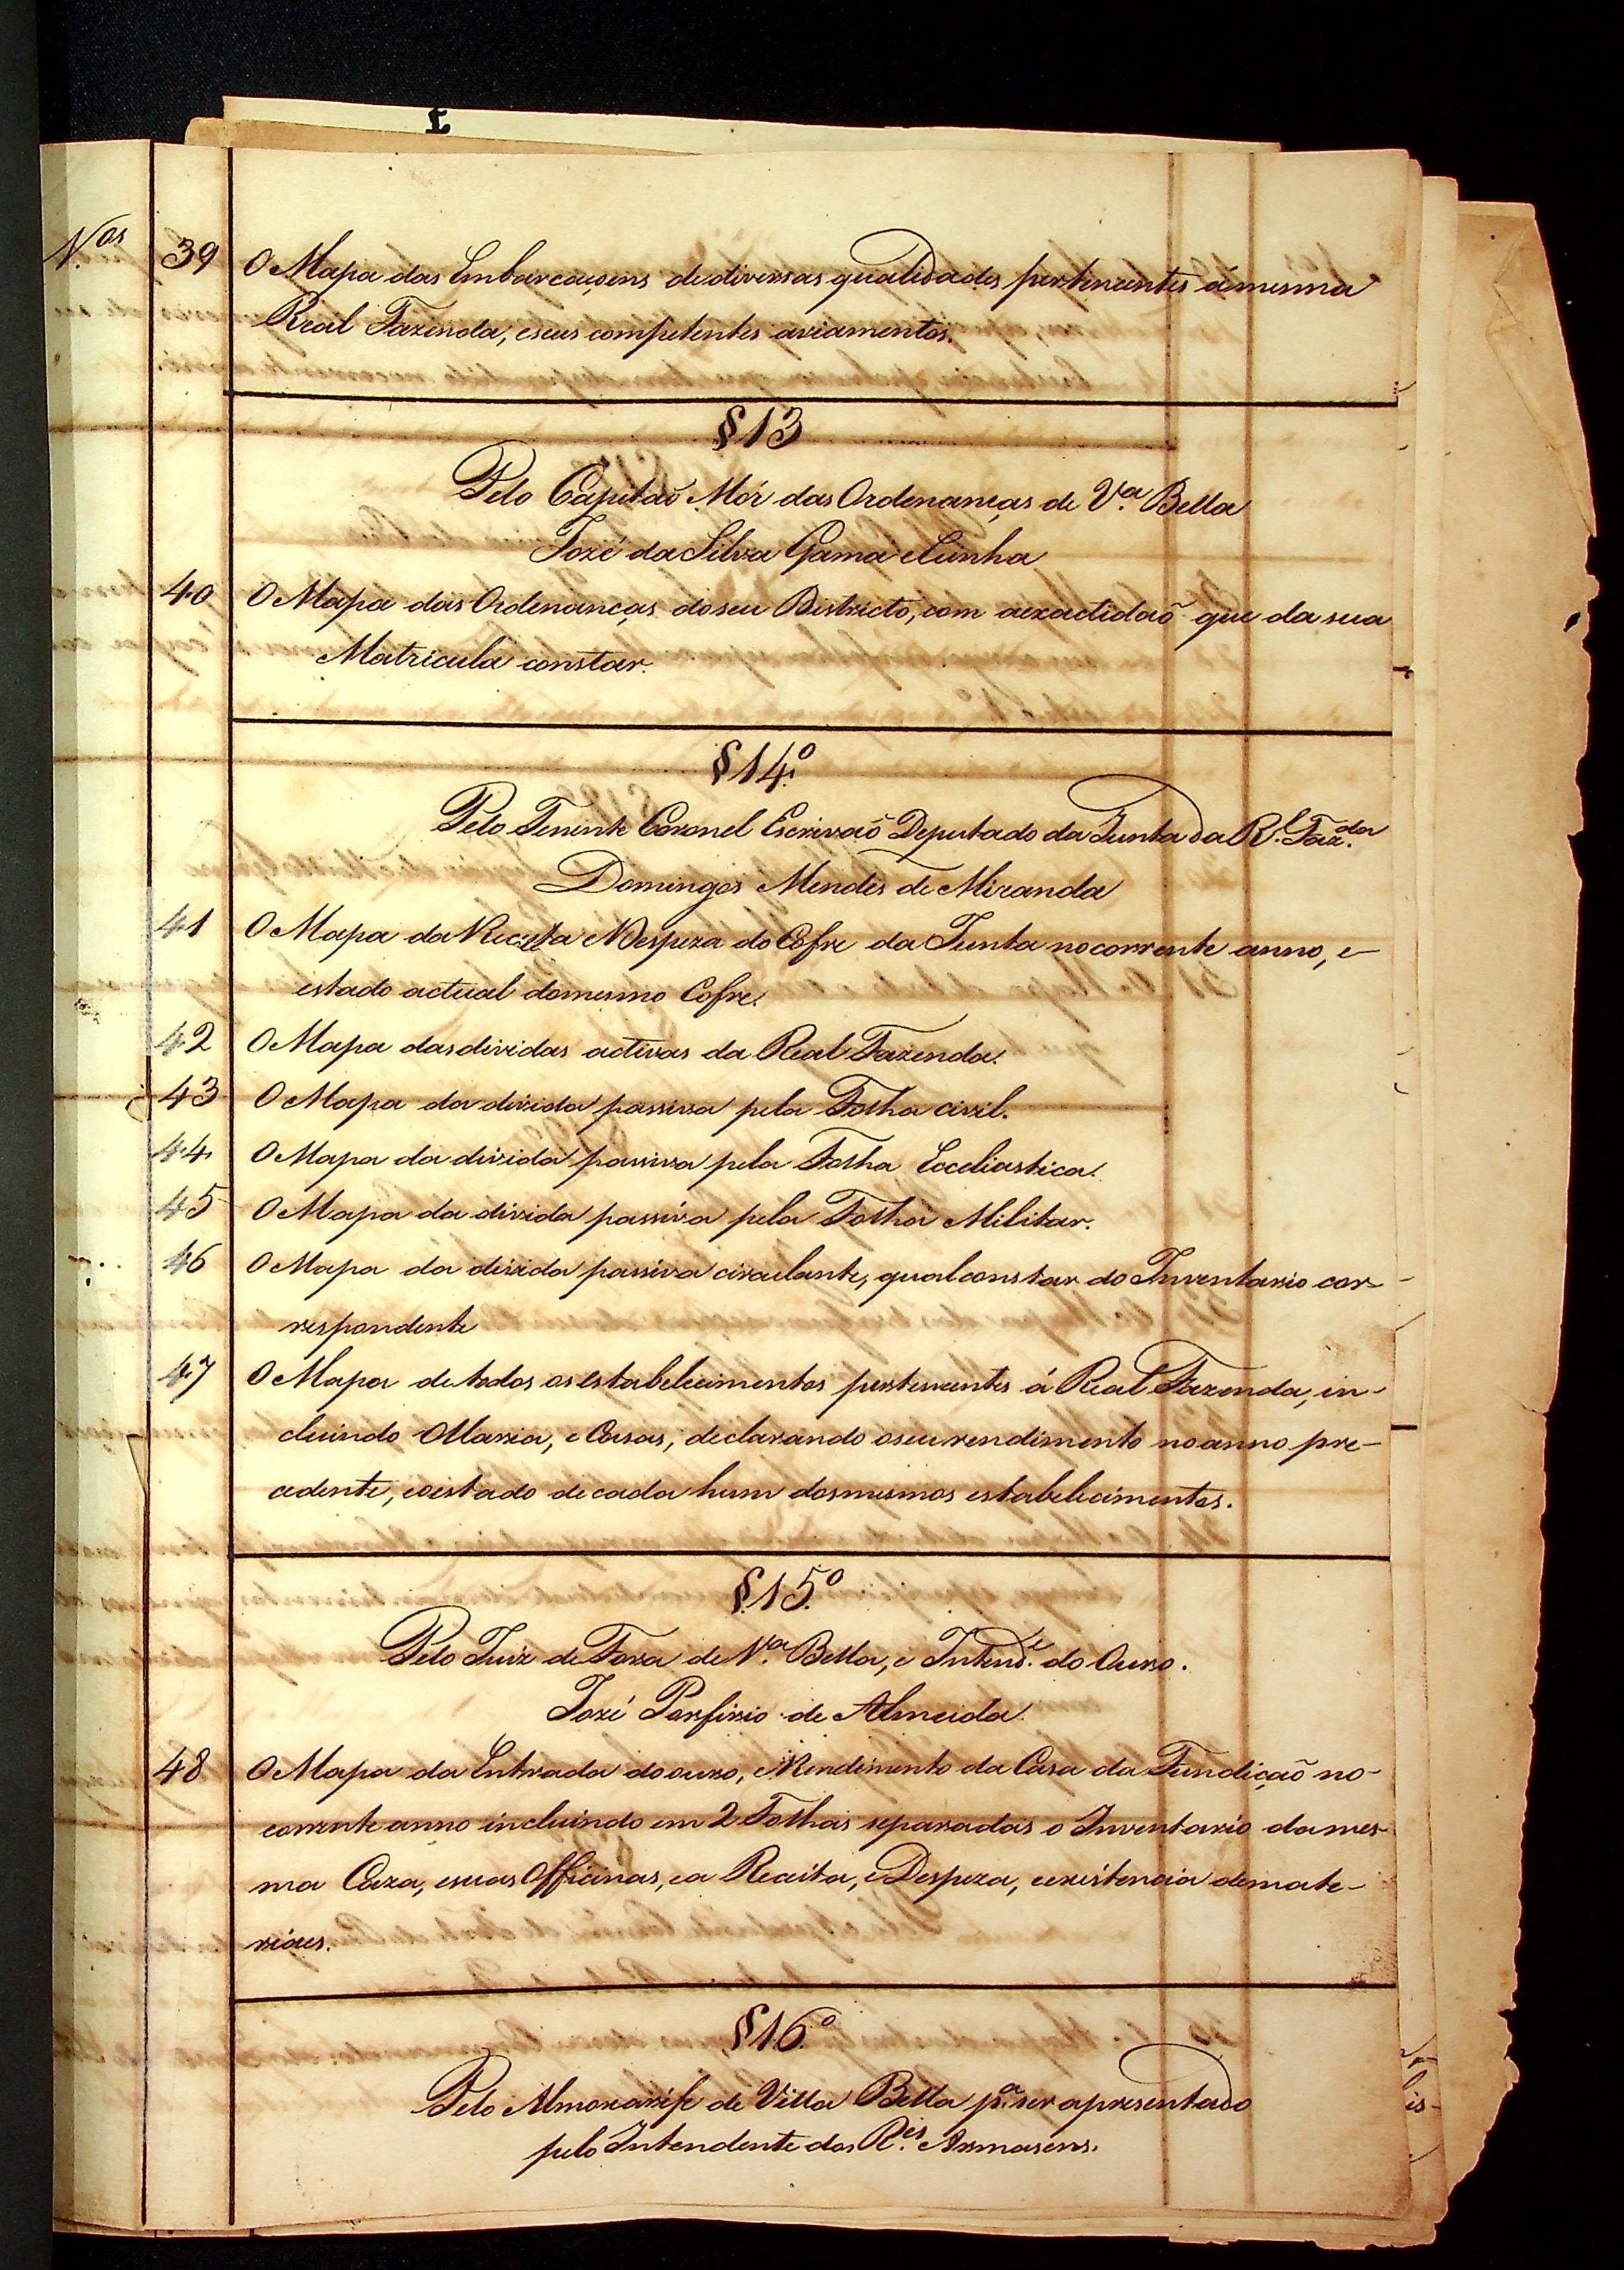 N.os 39 O Mapa das Embarcaçoens de diversas qualidades pertencentes á mesma
Real Fazenda, e seus competentes aviamentos.
§ 13
Pelo Capitaõ Mór das Ordenanças de V.a Bella
Jozé da Silva Gama e Cunha
40 O Mapa das Ordenanças do seu Districto, com a exactidaõ que da sua
Matricula constar.
§ 14.o
Pelo Tenente Coronel Escrivaõ Deputado da Junta da R.l Faz.da
Domingos Mendes de Miranda
41 O Mapa da Receita e Despeza do Cofre da Junta no corrente anno, e
estado actual do mesmo Cofre.
42 O Mapa das dividas activas da Real Fazenda.
43 O Mapa da divida passiva pela Folha civil.
44 O Mapa da divida passiva pela Folha Eccliastica.
45 O Mapa da divida passiva pela Folha Militar.
46 O Mapa da divida passiva circulante, qual constar do Inventario cor-
respondente
47 O Mapa de todos os estabelecimentos pertencentes á Real Fazenda, in-
cluindo Olaria, e Casas, declarando o seu rendimento no anno pre-
cedente, e o estado de cada hum dos mesmos estabelecimentos.
§ 15.o
Pelo Juiz de Fora de V.a Bella, e Intend.e do Ouro.
Jozé Porfirio de Almeida.
48 O Mapa da Entrada do ouro, e Rendimento da Casa da Fundiçaõ no-
corrente anno incluindo em 2 Folhas separadas o Inventario da mes-
ma Caza, e suas Officinas, e a Receita, e Despeza, e existencia de mate-
riáes.
§ 16.o
Pelo Almoxarife de Villa Bella p.a ser apresentado
pelo Intendente dos R.es Armasens.